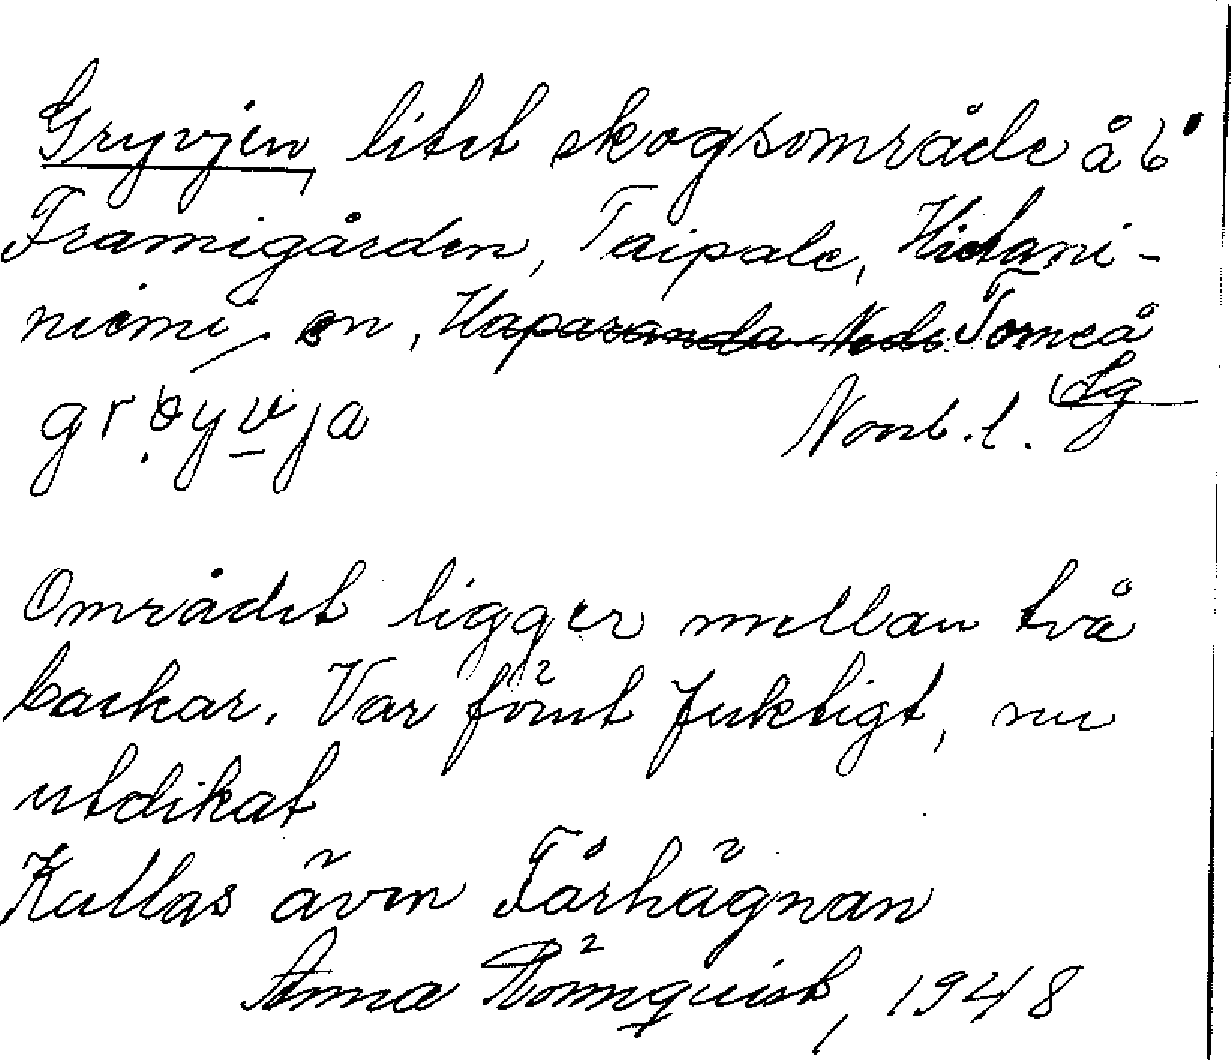 Gryvjen, litet skogsområde å 6
Framigården, Taipale, Hietani-
niemi sn, Haparanda Ned. Torneå
grøyvja Norrb. l. Lg
Området ligger mellan två
backar. Var förut fuktigt, nu
utdikat
Kallas även Fårhägnan
Anna Rönnquist, 1948